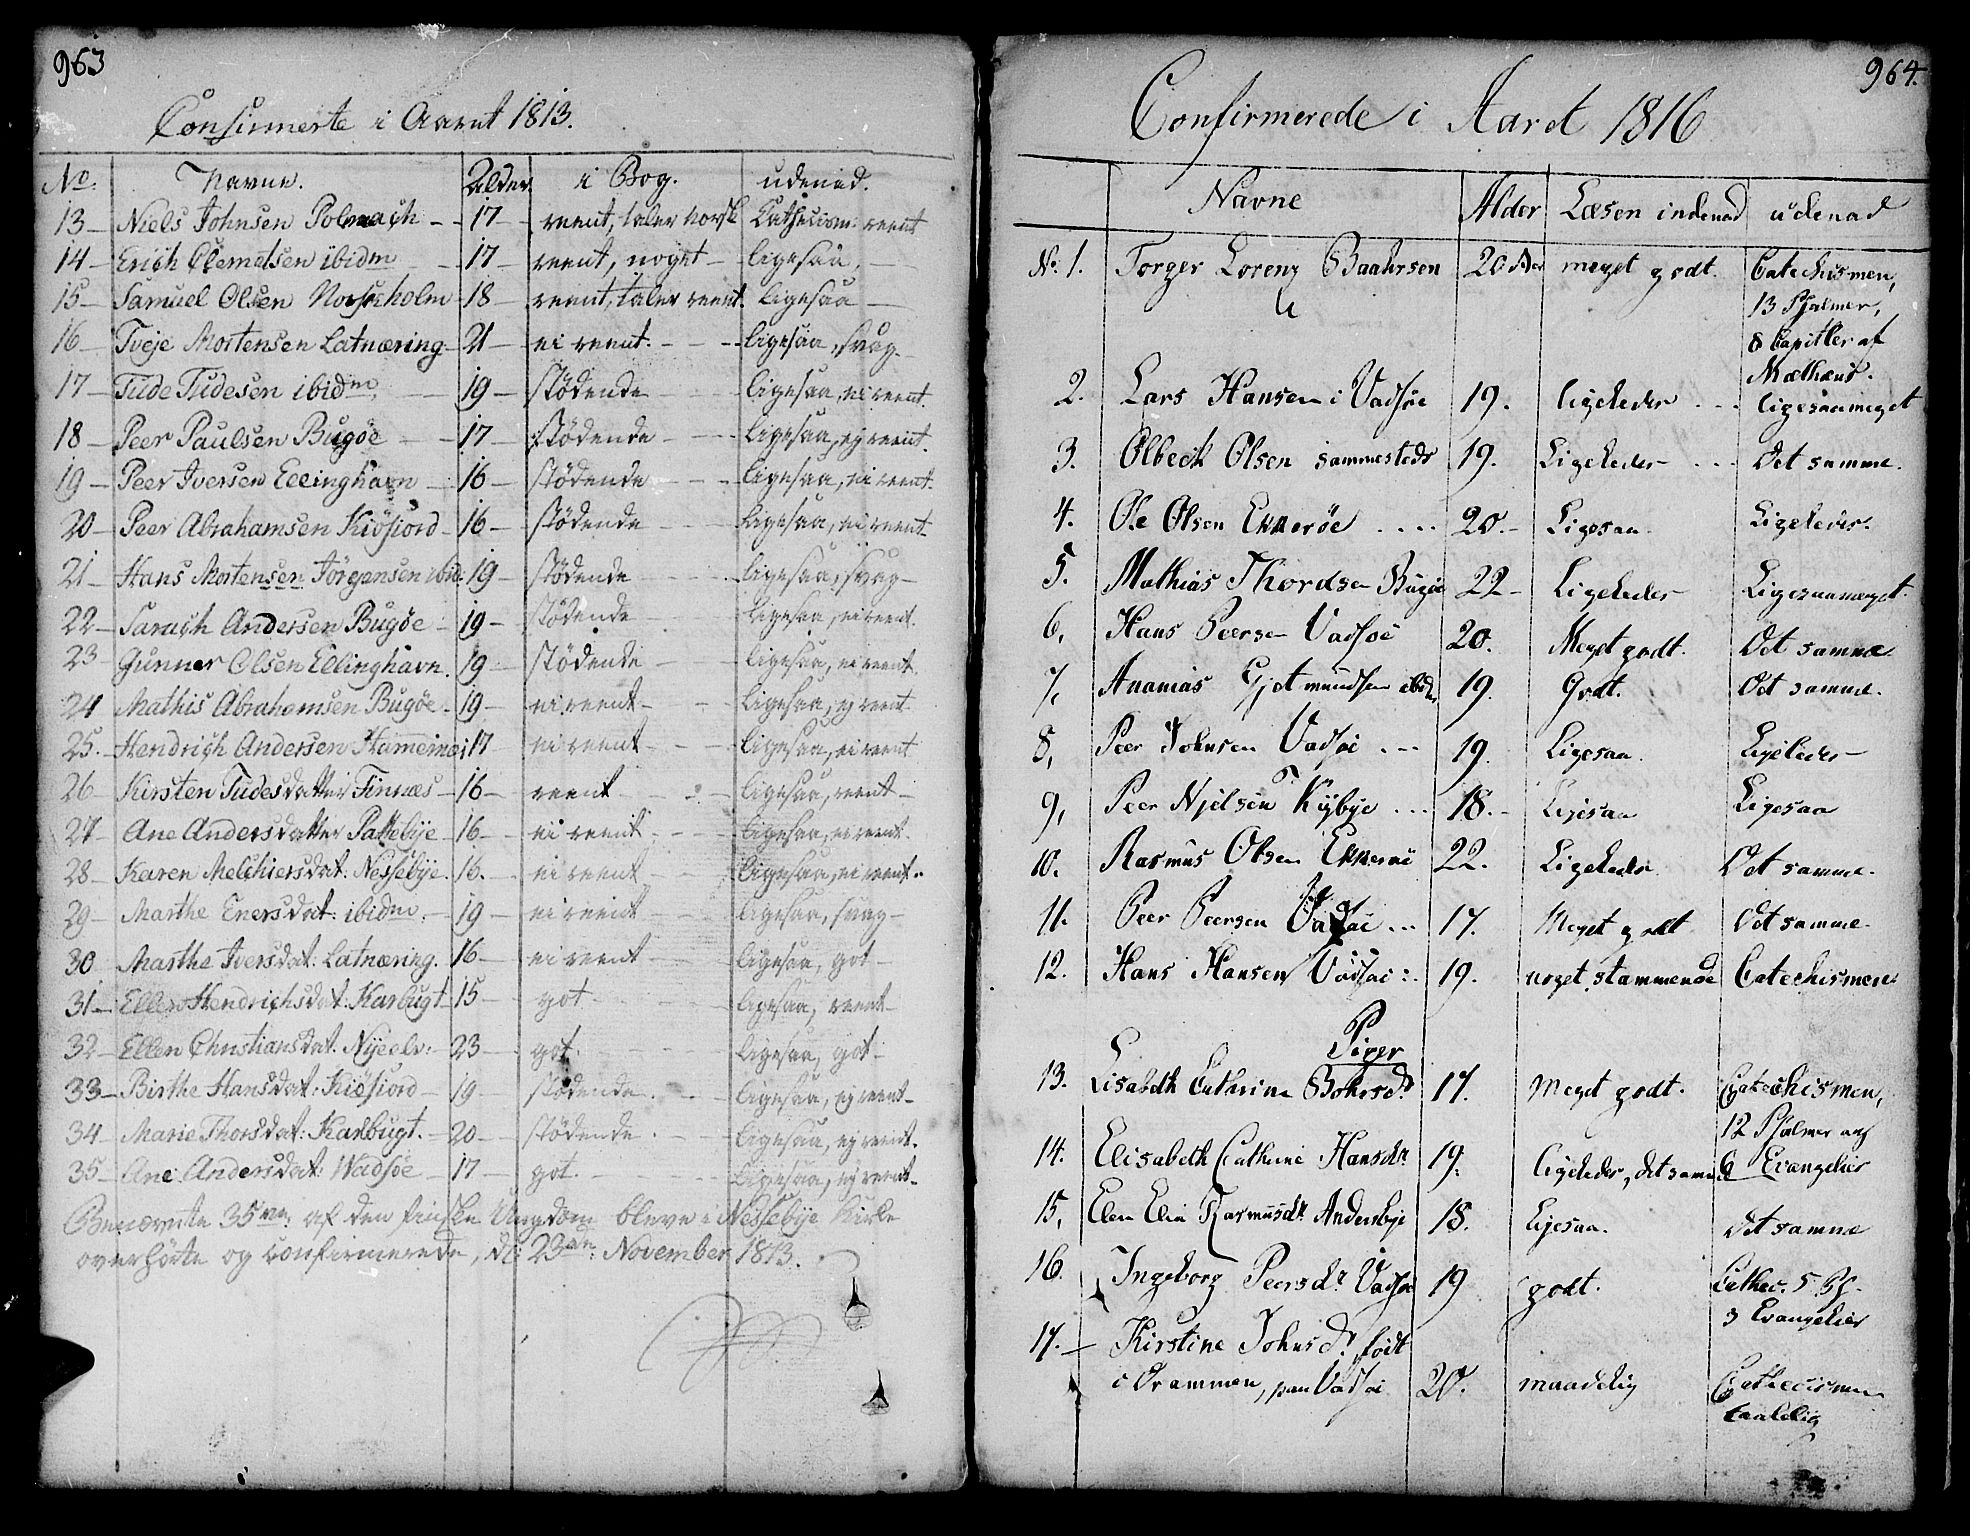 963
Confirmerte i Aaret 1813.
No. Navne. Alder i Bog. udenad.
13 – Niels Johnsen Polmach – 17 – reent, taler norsk Cathecism: reent
14 – Erich Clemetsen ibidm – 17 – reent, noget – ligesaa, –
15 – Samuel Olsen Norskholm – 18 – reent, taler reent ligesaa –
16 – Tveje Mortensen Latnæring – 21 – ei reent. – – ligesaa, svag –
17 – Tude Tudesen ibidm, – 19 – stødende – ligesaa, ei reent.
18 – Peer Paulsen Bugøe – 17 – stødende – – – ligesaa, ej reent.
19 – Peer Iversen Ellinghavn – 16 – stødende – – – ligesaa, ei reent.
20 – Peer Abrahamsen Kiøfiord – 16 – stødende – – – ligesaa, ei reent
21 – Hans Mortensen Jörgensen ibid: 19 – stødende – – – ligesaa, svag –
22 – Sarach Andersen Bugöe – 19 – stødende – – ligesaa, ei reent.
23 Gunner Olsen Ellinghavn. 19 – stødende – – ligesaa, ei reent
24 Mathis Abrahamsen Bugöe – 19 – ei reent – – ligesaa, ej reent
25. Hendrich Andersen 17 – ei reent – – ligesaa, ei reent
26 – Kirsten Tudesdatter Finnæs – 16 – reent – – ligesaa, reent –
27 – Ane Andersdatter Pattebÿe – 16 – ei reent – – ligesaa, ei reent
28 – Karen Melchiersdat: Nessebÿe. 16. – ei reent – – ligesaa, ei reent.
29 – Marthe Enersdat: ibidm. – 19 – ei reent – – ligesaa, svag –
30 Marthe Iversdat: Latnæring. 16 – ei reent – – ligesaa, got –
31 – Ellen Hendrichsdat: Karbugt 15 – got – – ligesaa, reent –
32 – Ellen Christiansdat. Nÿeelv: – 23 – got. – ligesaa, got –
33 – Birthe Hansdat: Kiöfiord – 19 – stødende. – – ligesaa, ej reent –
34 – Marie Thorsdat: Karbugt. – 20 – stødende. – – ligesaa, ej reent.
35 – Ane Andersdat: Wadsöe – 17 – got. – – ligesaa, ej reent –
Benævnte 35 af den finske Ungdom bleve i Nessebÿe Kirke
overhørte og confirmerede, d: 23de: November 1813.
964.
Confirmerede i Aaret 1816
Navne Alder Læsen indenad udenad
No. 1. Torger Lorenz Baahrsen 20 Aar meget godt. Catechismen,
13 Psalmer,
8 Capitler af
Mathæus.
2. Lars Hansen i Vadsøe 19. ligeledes . . . ligesaameget
3. Olbech Olsen sammesteds 19. Ligeledes – . . . Det samme.
4. Ole Olsen Ekkerøe . . . . 20. – Ligesaa. Ligeledes.
5. Mathias Thordsen Bugøe 22 – Ligeledes – Ligesaameget.
6, Hans Peersen Vadsøe 20. Meget godt. Det samme.
7, Ananias Gjetmundsen ibidm 19. Godt. Det samme.
8, Peer Johnsen Vadsøe . – – 19. Ligesaa. Ligeledes –
9, Peer Njelsen Kÿbÿe . . . 18. – Ligesaa Ligesaa
10. Rasmus Olsen Ekkerøe 22. Ligeledes Det samme.
11. Peer Peersen Vadsøe . . . 17. Meget godt Det samme.
12. Hans Hansen Vadsøe : . 19. noget stammende Catechismen
Piger
13. Lisabeth Cathrine Bohrsd. 17. Meget godt. Catechismen,
12 Psalmer og
14. Elisabeth Cathrine Hansdr. 19. ligeledes, det samme 6 Evangelier
15, Elen Elin Rasmusdr. Andersbÿe 18. Ligesaa. Det samme
16. Ingeborg Peersdr. Vadsøe 19 godt. Cathec. 5 Ps.
3 Evangelier
17. – Kirstine Johnsdr. født
i Drammen, paa Vadsøe 20. maadelig Cathecismen
taalelig